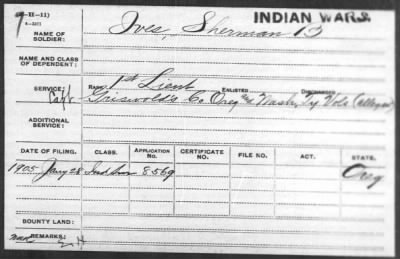 INDIAN WARS.
NAME OF SOLDIER: Ives, Sherman B
NAME AND CLASS OF DEPENDENT:
SERVICE: Capt RANK 1st Lieut ENLISTED DISCHARGED
Griswold's Co Oreg & Wash, Ty Vols (alleged)
ADDITIONAL SERVICE:
DATE OF FILING. CLASS. APPLICATION No. CERTIFICATE NO. FILE NO. ACT. STATE.
1905 Jany 28 Ind Sur 8569 Oreg
BOUNTY LAND:
REMARKS: